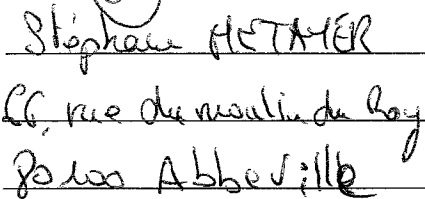 Stéphane METAYER
66, rue du moulin du Roy
80100 Abbeville